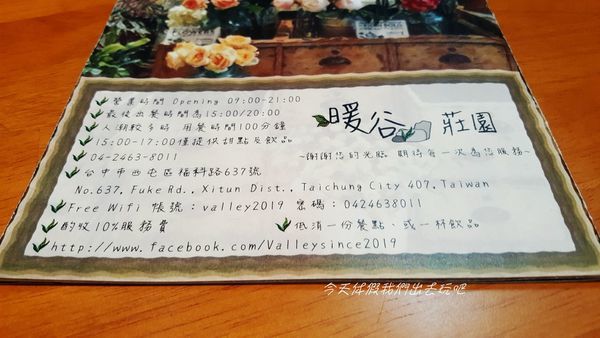 營業時間 Opening 09:00-21:00
最後出餐時間為15:00/20:00
人潮較多時 用餐時間100分鐘
15:00-17:00僅提供甜點及飲品
04-2463-8011
台中市西屯區福科路637號
No.637, Fuke Rd., Xitun Dist., Taichung City 407, Taiwan
Free Wifi 帳號：valley2019 密碼：0424638011
酌收10%服務費
低消一份餐點、或一杯飲品
http://www.facebook.com/Valleysince2019
暖谷 莊園
~謝謝您的光臨 期待每一次為您服務~
今天休假我們出去玩吧